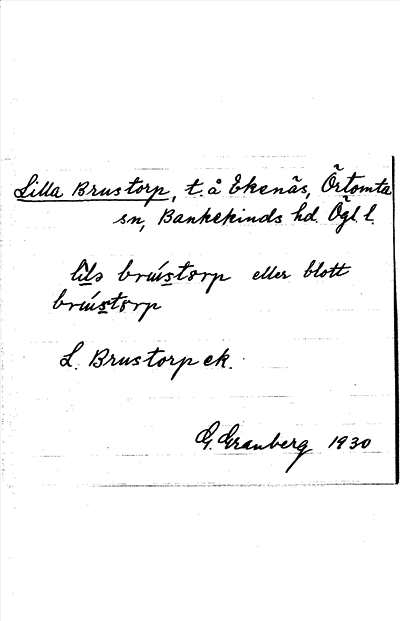 Lilla Brustorp, t. å Ekenäs, Örtomta
sn, Bankekinds hd. Ögl. l.
brústorp eller blott
brústorp
L. Brustorp ek.
G. Granberg 1930